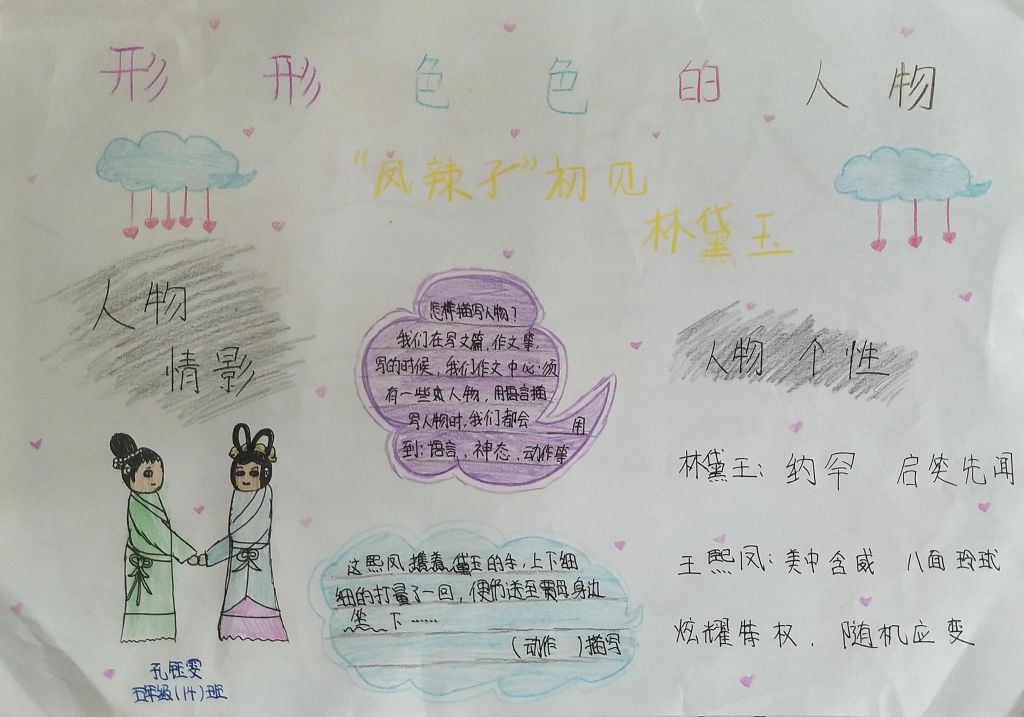 形形色色的人物
“凤辣子”初见
林黛玉
人物
情影
怎样描写人物？
我们在写文篇，作文等，
写的时候，我们作文中必须
有一些人物，用语言描
写人物时，我们都会用
到：语言，神态，动作等
这熙凤携着黛玉的手，上下细
细的打量了一回，便仍送至贾母身边
坐下……
（动作）描写
人物个性
林黛玉：纳罕 启笑先闻
王熙凤：美中含威 八面玲球
炫耀特权，随机应变
孔钰雯
五年级(14)班